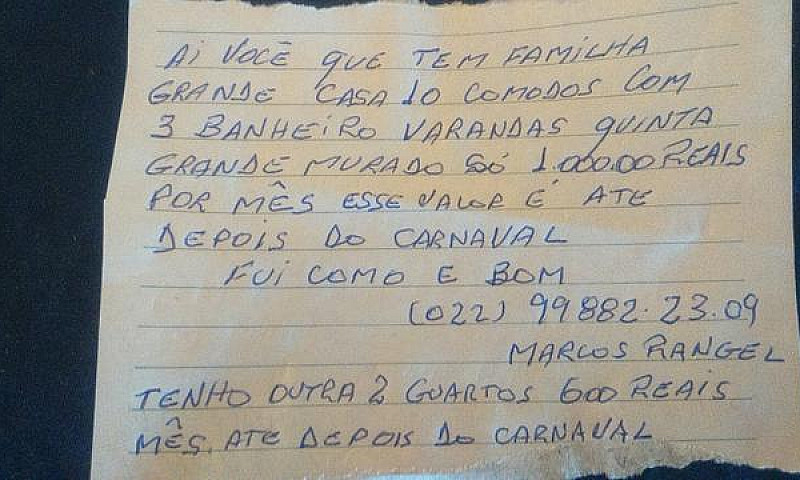 Ai VOCÊ QUE TEM FAMILHA
GRANDE CASA 10 COMODOS COM
3 BANHEIRO VARANDAS QUINTA
GRANDE MURADO SÓ 1.000.00 REAIS
POR MÊS ESSE VALOR É ATE
DEPOIS DO CARNAVAL
FUI COMO E BOM
(022) 99882.23.09
MARCOS RANGEL
TENHO OUTRA 2 QUARTOS 600 REAIS
MÊS, ATE DEPOIS DO CARNAVAL